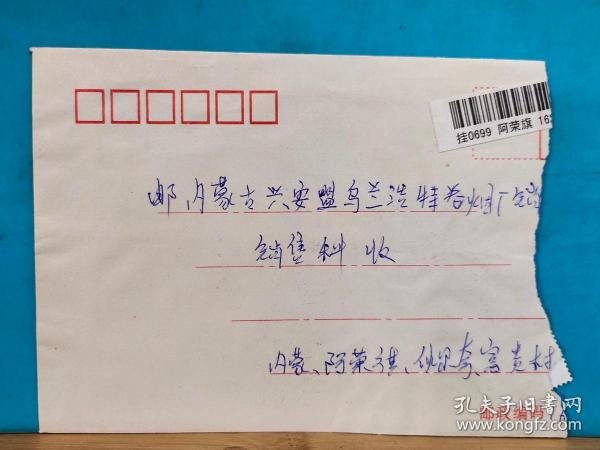 挂0699 阿荣旗 16
邮、内蒙古兴安盟乌兰浩特卷烟厂
销售科 收
内蒙、阿荣旗、伙尔奇、富贵村
邮政编码
孔夫子旧书网
www.kongfz.com